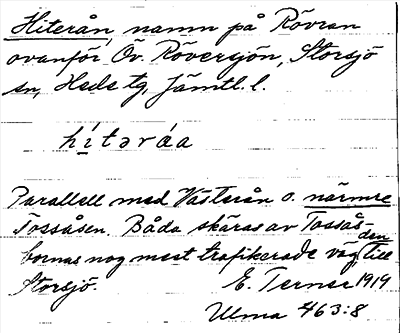 Hiterån namn på Rövran
ovanför Öv. Röversjön, Storsjö
sn, Hede tg, Jämtl. l.
hítəráa
Parallell med Västerån o. närmre
Tossåsen. Båda skäras av Tossås-
bornas nog mest trafikerade väg, den till
Storsjö.
E. Terner 1919
Ulma 463:8